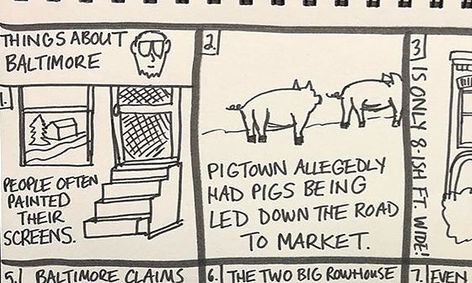 THINGS ABOUT
BALTIMORE
1.
PEOPLE OFTEN
PAINTED
THEIR
SCREENS.
2.
PIGTOWN ALLEGEDLY
HAD PIGS BEING
LED DOWN THE ROAD
TO MARKET.
3
IS ONLY 8ISH FT. WIDE!
5. BALTIMORE CLAIMS
6. THE TWO BIG ROWHOUSE
7. EVEN